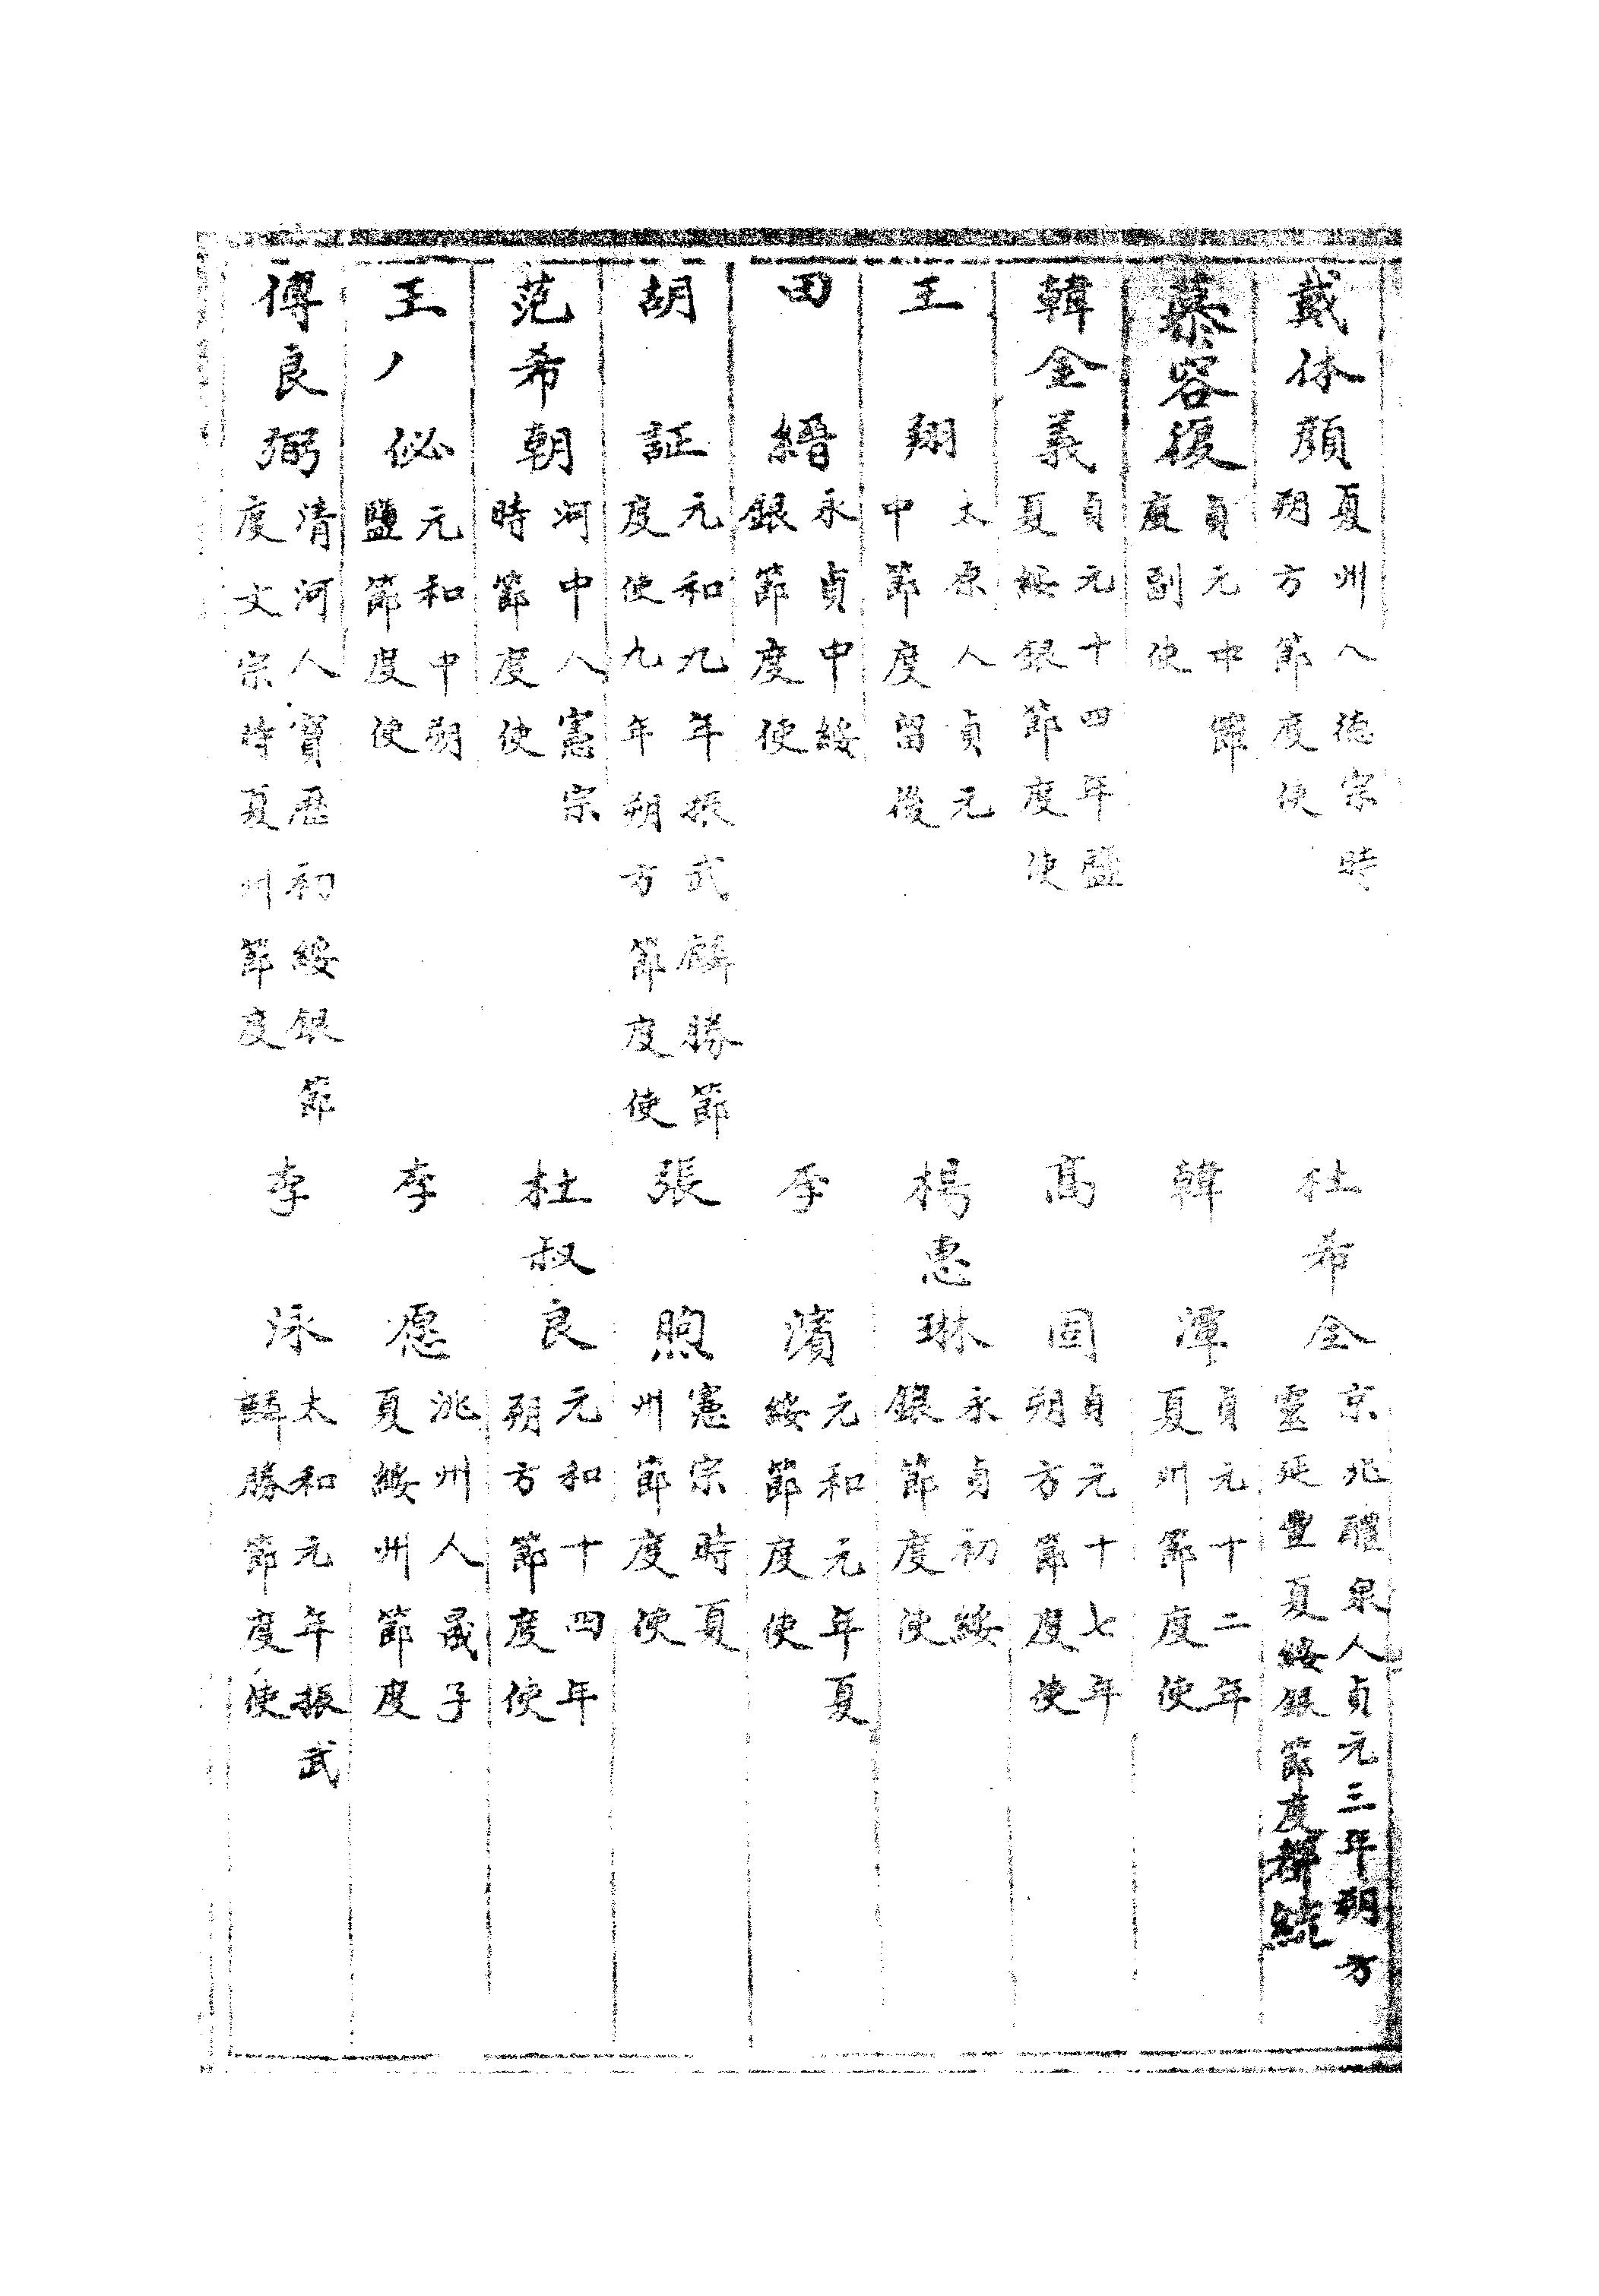 戴休顔夏州人德宗時朔方節度使　杜希全京兆醴泉人貞元三年朔方靈延豊夏綏銀節度都統
慕容復貞元中節度副使　韓潭貞元十二年夏州節度使
韓全義貞元十四年鹽夏綏銀節度使　高固貞元十七年朔方節度使
王翃太原人貞元中節度留後　楊惠琳永貞初綏銀節度使
田縉永貞中綏銀節度使　李濱元和元年夏綏節度使
胡証元和九年振武麟勝節度使九年朔方節度使　張煦憲宗時夏州節度使
范希朝河中人憲宗時節度使　杜叔良元和十四年朔方節度使
王佖元和中朔鹽節度使　李愿洮州人晟子夏綏州節度
傅良弼清河人寶歷初綏銀節度文宗時夏州節度　李泳太和元年振武麟勝節度使